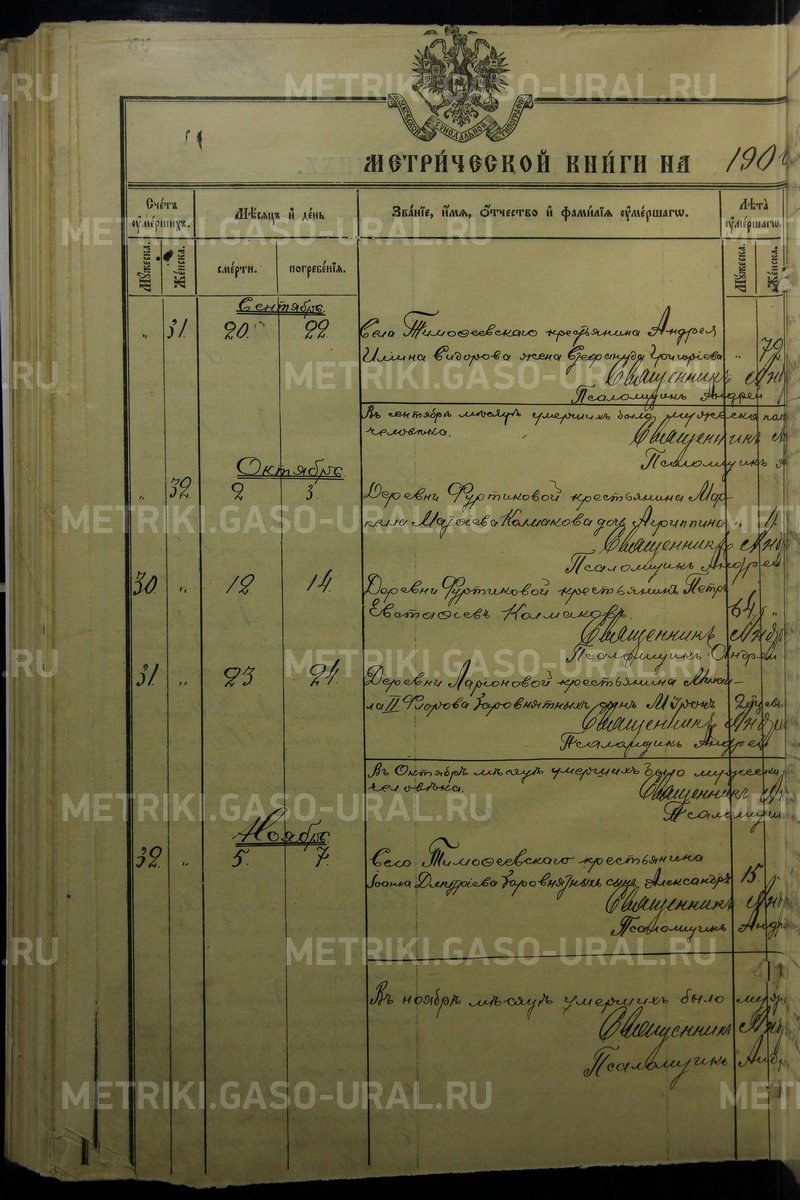 МЕТРИЧЕСКОЙ КНИГИ НА 190
Счетъ умершихъ.
Мѣсяцъ и день
Званіе, имя, отчество и фамилія умершаго.
Лѣта умершаго.
Мужеска.
Женска.
смерти.
погребенія.
Мужеска.
Женска.
Сентябрь
„ 31. 20. 22 Села Тимоѳеевского крестьянина Андрея
Сидорова жена „ 79
Священникъ
Псаломщикъ Андрей
Въ сентябрѣ мѣсяцѣ умершихъ было мужеска пол
человѣка. Священникъ
Псаломщикъ
Октябрь
„ 32. 2 3. Деревни Фуртиковой крестьянина
Колмакова дочь Агриппина „
Священникъ
Псаломщикъ Андрей
30 „ 12 14. Деревни Фуртиковой крестьянинъ Петръ
Колмаковъ. 64 „
Священникъ
Псаломщикъ Андрей
31 „ 23 24. Деревни Ларіоновой крестьянина
ла II Флорова Коровнятныхъ сынъ Мѵронъ
Священникъ
Псаломщикъ Андрей
Въ Октябрѣ мѣсяцѣ умершихъ было мужеска
человѣка. Священникъ
Псаломщи
Ноябрь
32 „ 5. 7. Село Тимоѳеевского крестьянина
Іоанна Димитріева Коровнятныхъ сынъ Александръ 15.
Священникъ
Псаломщикъ Андр
Въ ноябрѣ мѣсяцѣ умершихъ было муж
Священникъ
Псаломщикъ Андр
METRIKI.GASO-URAL.RU